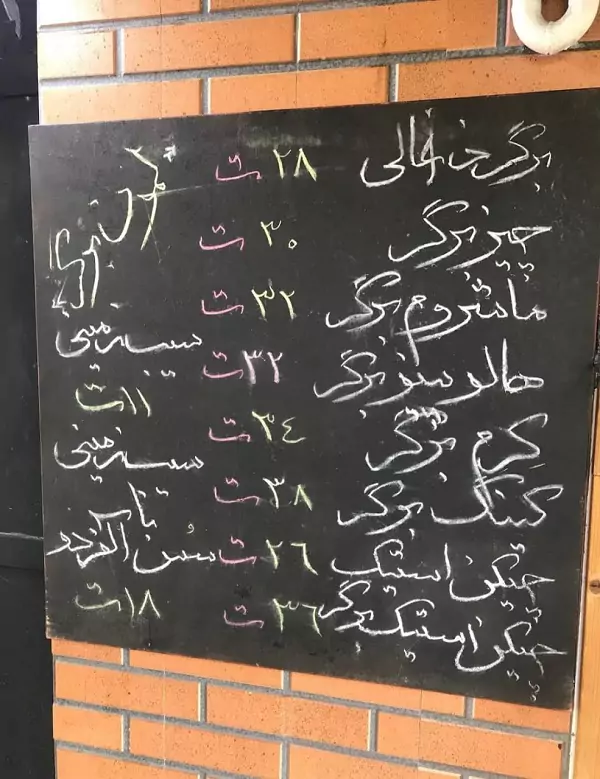 برگر خالی ۲۸ ت
چیز برگر ۳۰ ت
ماشروم برگر ۳۲ ت
هالوپینو برگر ۳۲ ت
کرم برگر ۳٤ ت
کینگ برگر ۳۸ ت
چیکن استیک ۲٦ ت
چیکن استیک برگر ۳٦ ت
سیب زمینی
۱۱ ت
سیب زمینی
با
سس آلفردو
۱۸ ت